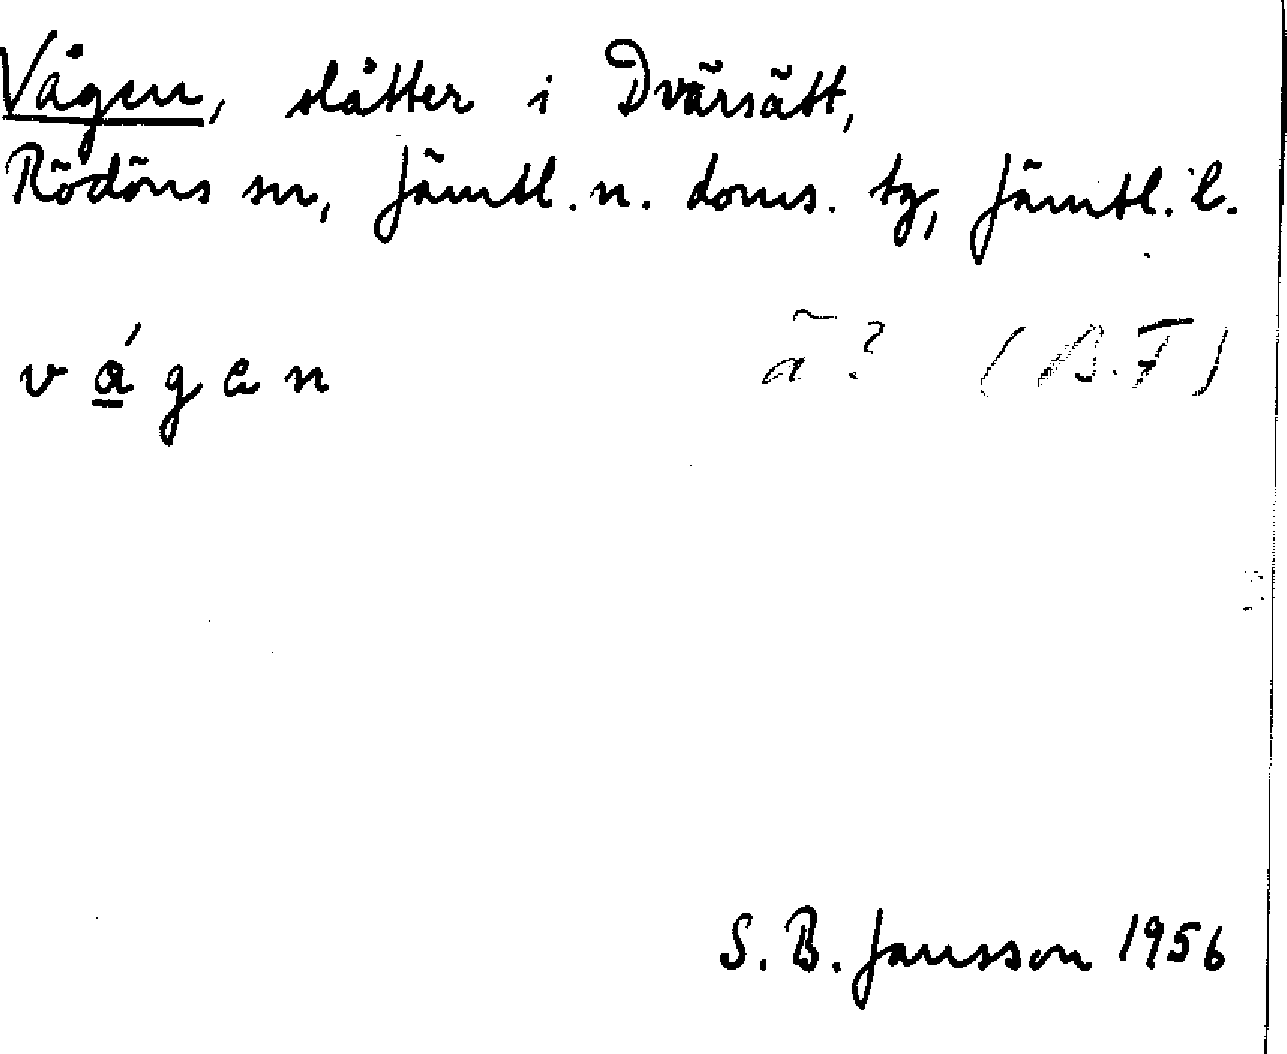 Vågen, slåtter i Dvärsätt,
Rödöns sn, Jämtl. n. doms. tg, Jämtl. l.
vágen ã? (B.F)
S. B. Jansson 1956